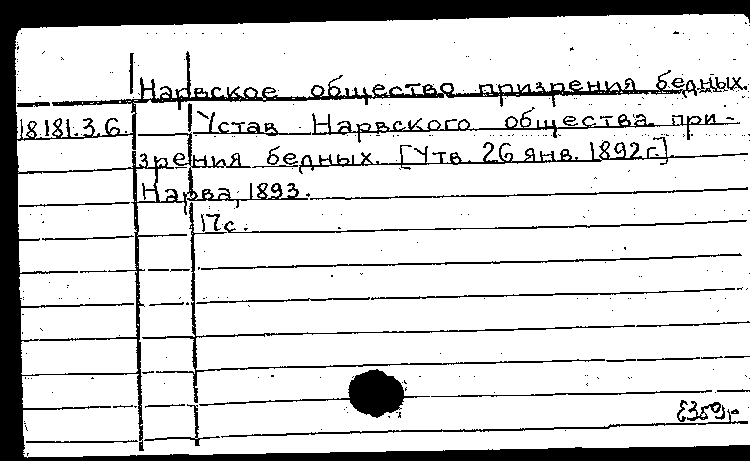 Нарвское общество призрения бедных.
18.181.3.6. Устав Нарвского общества при-
зрения бедных. [Утв. 26 янв. 1892г.].
Нарва, 1893.
17с.